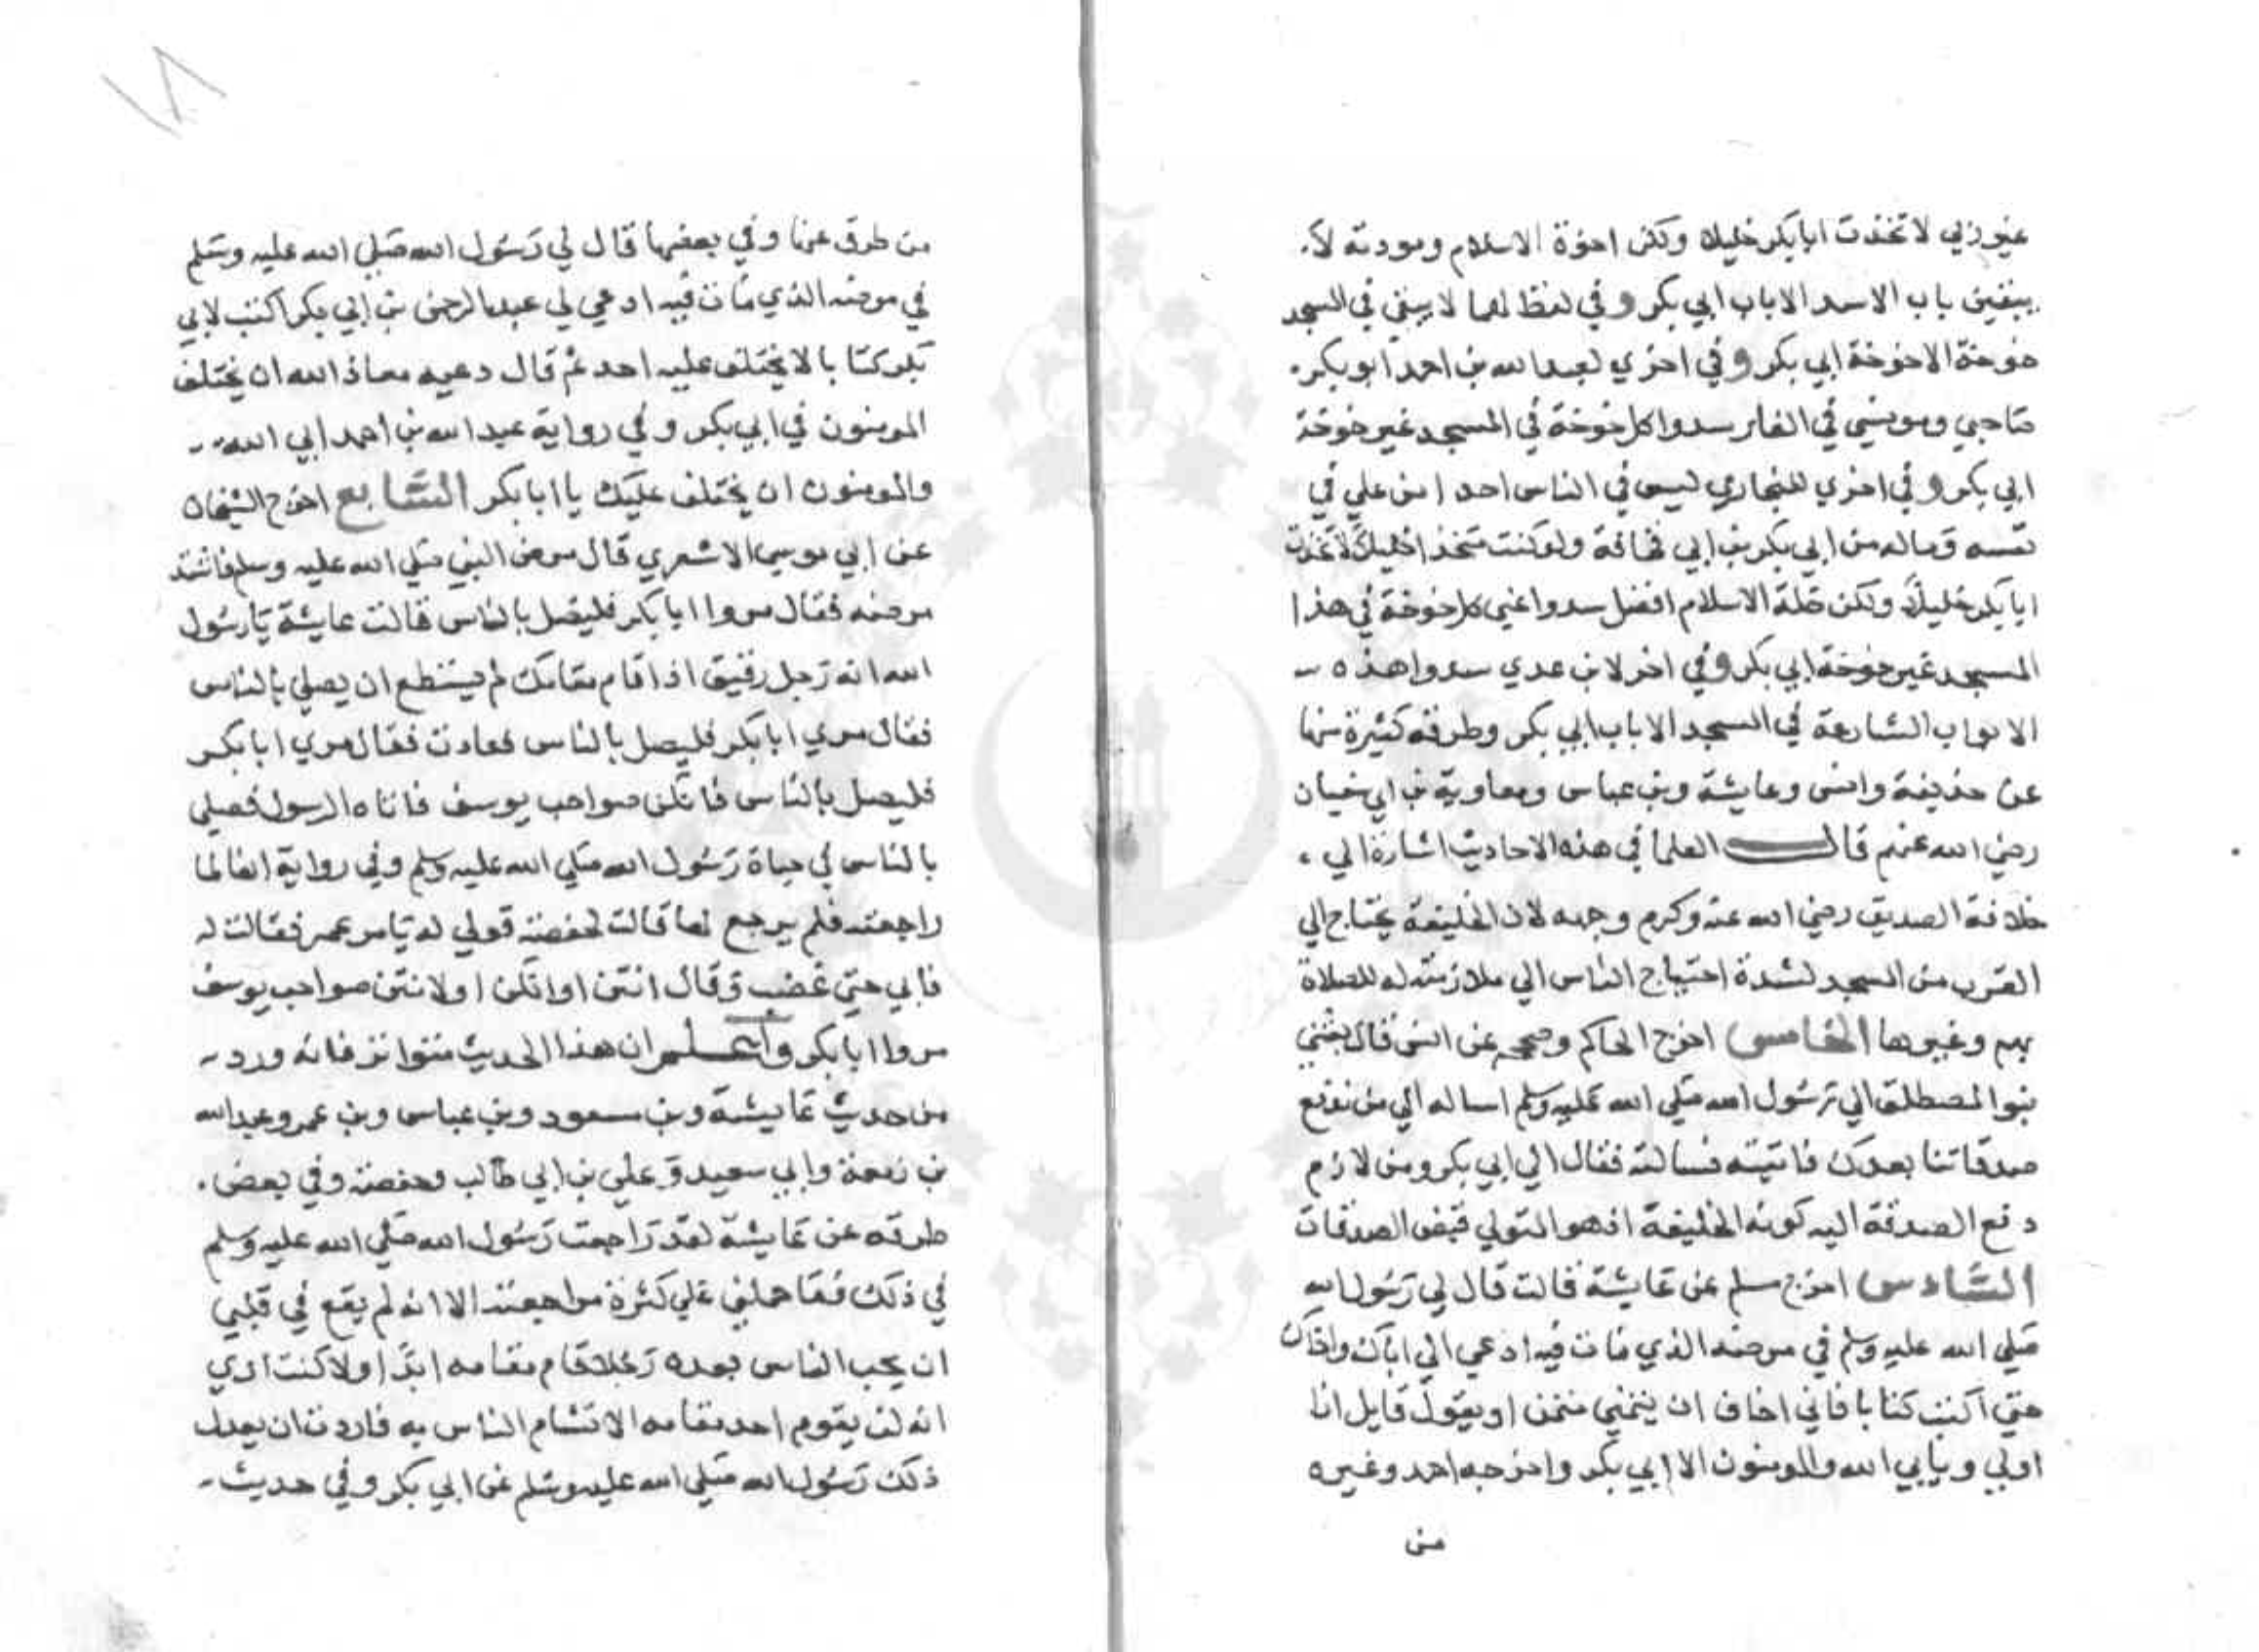 غير ربي لاتخذت ابا بكر خليلا ولكن اخوة الاسلام ومودته لا
يبقين باب الاسد الا باب ابي بكر وفي لفظ لهما لا يبقي في المسجد
خوخة الا خوخة ابي بكر وفي اخري لعبد الله بن احمد ابو بكر
صاحبي ومونسي في الغار سدوا كل خوخة في المسجد غير خوخة
ابي بكر وفي اخري للبخاري ليس في الناس احد امن علي في
نفسه وماله من ابي بكر بن ابي قحافة ولو كنت متخذا خليلا لاتخذت
ابا بكر خليلا ولكن خلة الاسلام افضل سدوا عني كل خوخة في هذا
المسجد غير خوخة ابي بكر وفي اخر لابن عدي سدوا هذه
الابواب الشارعة في المسجد الا باب ابي بكر وطرقه كثيرة منها
عن حذيفة وانس وعايشة وبن عباس ومعاوية بن ابي سفيان
رضي الله عنهم قال العلما في هذه الاحاديث اشارة الي
خلافة الصديق رضي الله عنه وكرم وجهه لان الخليفة يحتاج الي
القرب من المسجد لشدة احتياج الناس الي ملازمته له للصلاة
بهم وغيرها الخامس اخرج الحاكم وصححه عن انس قال بعثني
بنوا المصطلق الي رسول الله صلي الله عليه وسلم اساله الي من ندفع
صدقاتنا بعدك فاتيته فسالته فقال الي ابي بكر ومن لازم
دفع الصدقة اليه كونه الخليفة اذ هو المتولي قبض الصدقات
السادس اخرج مسلم عن عايشة قالت قال لي رسول الله
صلي الله عليه وسلم في مرضه الذي مات فيه ادعي الي اباك واخاك
حتي اكتب كتابا فاني اخاف ان يتمني متمن او يقول قايل انا
اولي ويابي الله والمومنون الا ابي بكر واخرجه احمد وغيره
من
١٨
من طرق عنها وفي بعضها قال لي رسول الله صلي الله عليه وسلم
في مرضه الذي مات فيه ادعي لي عبد الرحمن بن ابي بكر اكتب لابي
بكر كتابا لا يختلف عليه احد ثم قال دعيه معاذ الله ان يختلف
المومنون في ابي بكر وفي رواية عبد الله بن احمد ابي الله
والمومنون ان يختلف عليك يا ابا بكر السابع اخرج الشيخان
عن ابي موسي الاشعري قال مرض النبي صلي الله عليه وسلم فاشتد
مرضه فقال مروا ابا بكر فليصل بالناس قالت عايشة يا رسول
الله انه رجل رقيق اذا قام مقامك لم يستطع ان يصلي بالناس
فقال مري ابا بكر فليصل بالناس فعادت فقال مري ابا بكر
فليصل بالناس فانكن صواحب يوسف فاتاه الرسول فصلي
بالناس في حياة رسول الله صلي الله عليه وسلم وفي رواية انها لما
راجعته فلم يرجع لها قالت لحفصة قولي له يامر عمر فقالت له
فابي حتي غضب وقال انتن او انكن او لانتن صواحب يوسف
مروا ابا بكر واعلم ان هذا الحديث متواتر فانه ورد
من حديث عايشة وبن مسعود وبن عباس وبن عمر وعبد الله
بن زمعة وابي سعيد وعلي بن ابي طالب وحفصة وفي بعض
طرقه عن عايشة لقد راجعت رسول الله صلي الله عليه وسلم
في ذلك فما حملني علي كثرة مراجعته الا انه لم يقع في قلبي
ان يحب الناس بعده رجلا قام مقامه ابدا ولا كنت اري
انه لن يقوم احد مقامه الا تشام الناس به فاردت ان يعدل
ذلك رسول الله صلي الله عليه وسلم عن ابي بكر وفي حديث